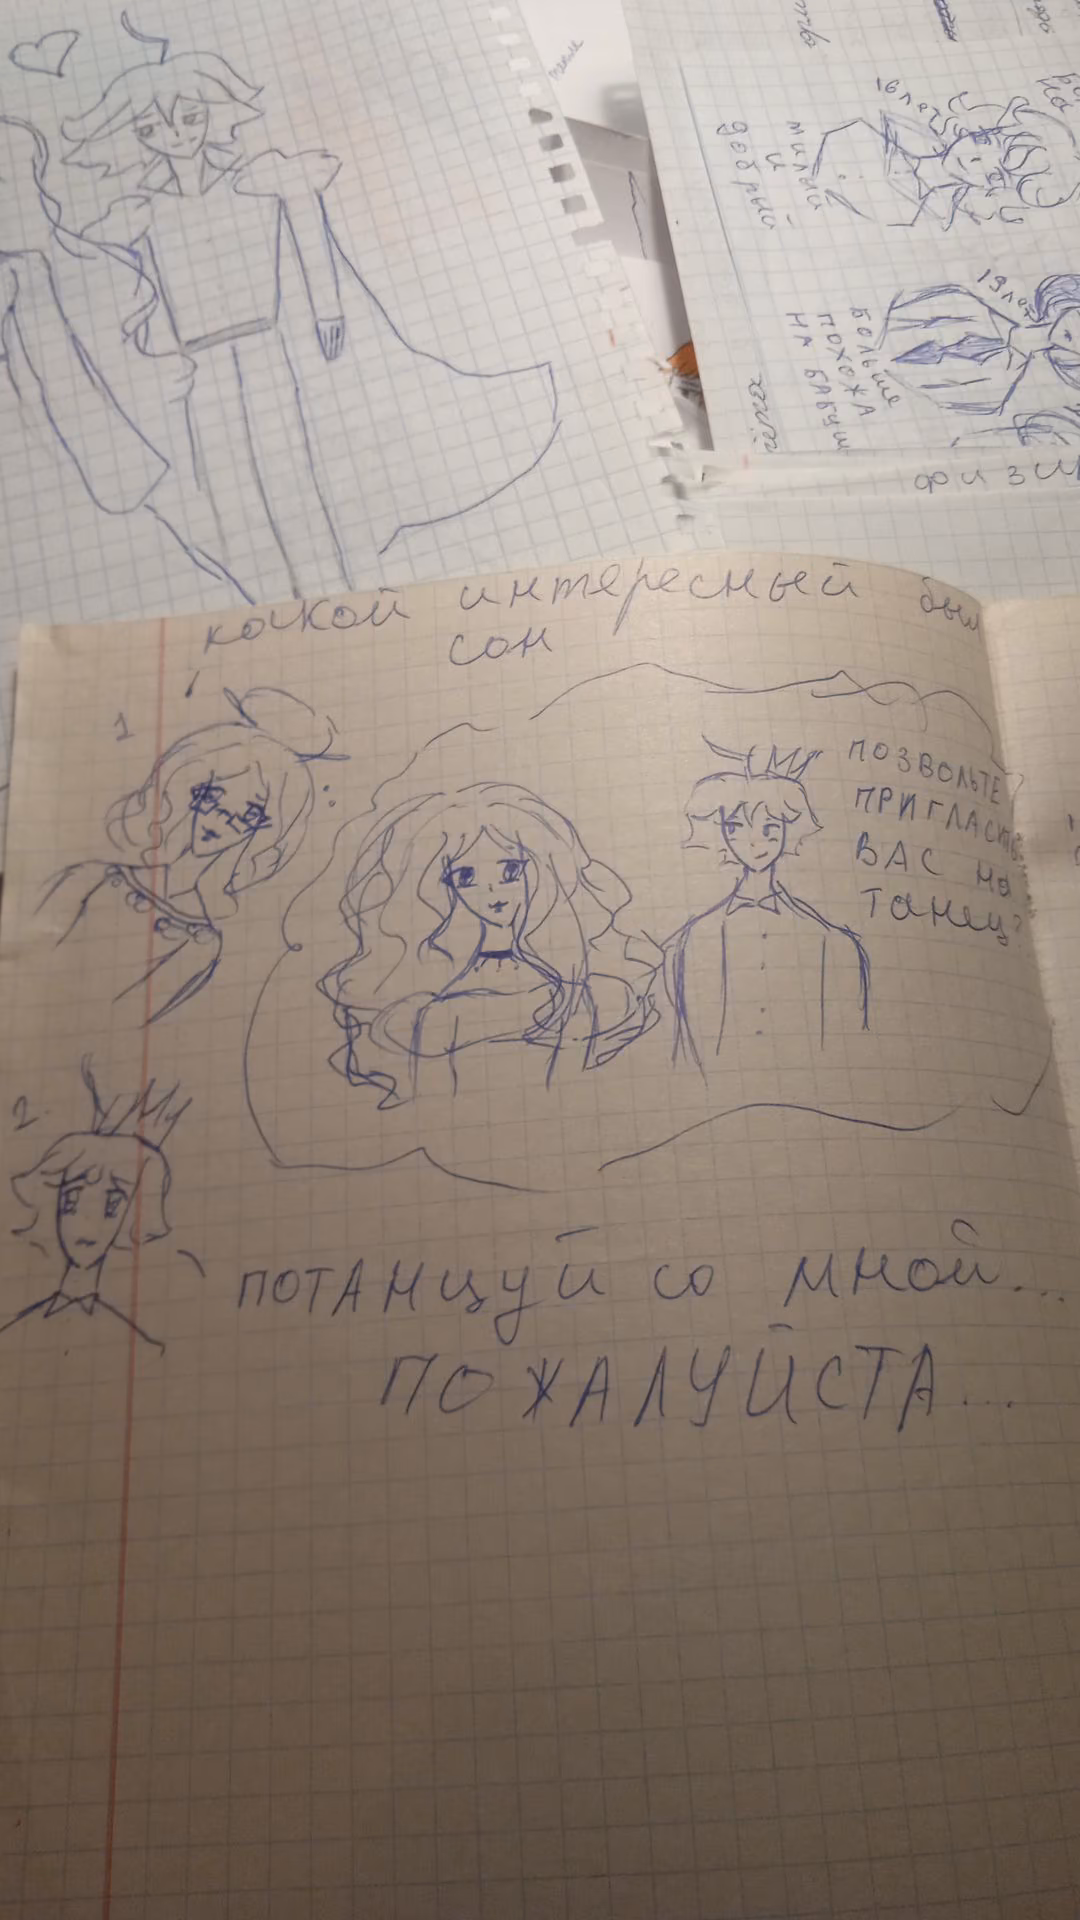 16 лет
милый
и
добрый
19 лет
больше
похожа
на бабушк
физик
какой интересный был
сон
1
позвольте
пригласить
вас на
танец?
2.
потанцуй со мной...
пожалуйста...